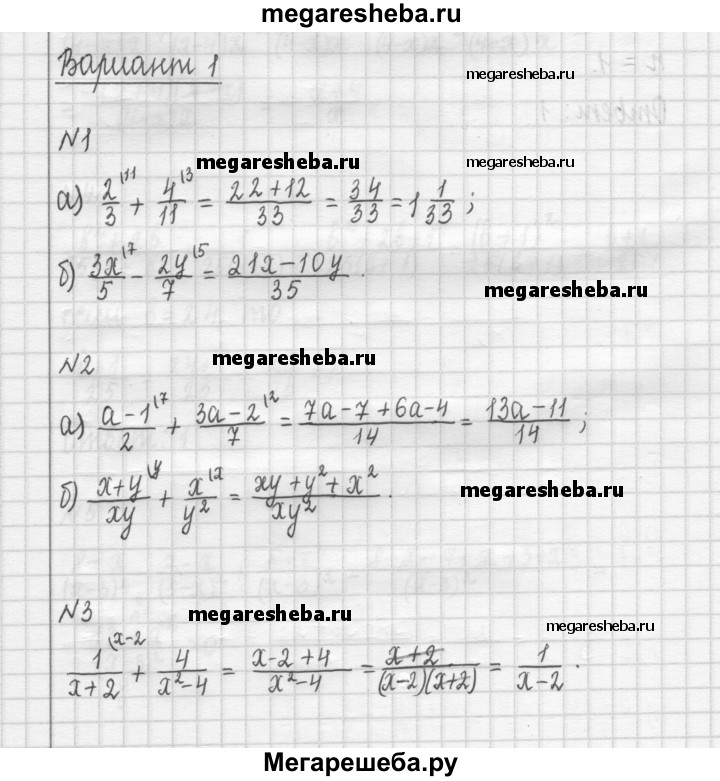 megaresheba.ru
Вариант 1
megaresheba.ru
№1
megaresheba.ru
megaresheba.ru
а) 2/3 \11 + 4/11 \3 = 22+12/33 = 34/33 = 1 1/33 ;
б) 3x/5 \7 - 2y/7 \5 = 21x-10y/35 .
megaresheba.ru
№2
megaresheba.ru
а) a-1/2 \7 + 3a-2/7 \2 = 7a-7+6a-4/14 = 13a-11/14 ;
б) x+y/xy \y + x/y² \x = xy+y²+x²/xy² .
megaresheba.ru
№3
megaresheba.ru
megaresheba.ru
1/x+2 \x-2 + 4/x²-4 = x-2+4/x²-4 = x+2/(x-2)(x+2) = 1/x-2 .
megaresheba.ru
Мегарешеба.ру